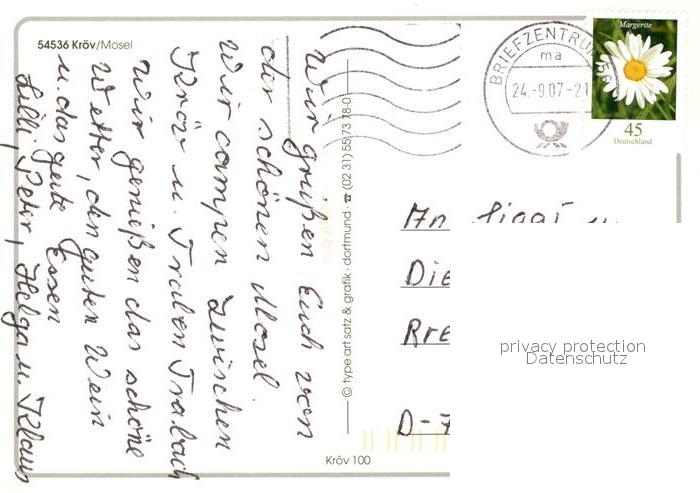 54536 Kröv/Mosel
Wir grüßen Euch von
der schönen Mosel.
Wir campen zwischen
Kröv u. Traben Trabach
Wir genießen das schöne
Wetter, den guten Wein
u. das gute Essen
Lilli, Peter, Helga u. Klaus
© type art satz & grafik · dortmund · ☎ (02 31) 55 73 78-0
Kröv 100
BRIEFZENTRUM
ma
24.-9.07-21
Margerite
45
Deutschland
An Siggi u.
Die
D-7
privacy protection
Datenschutz